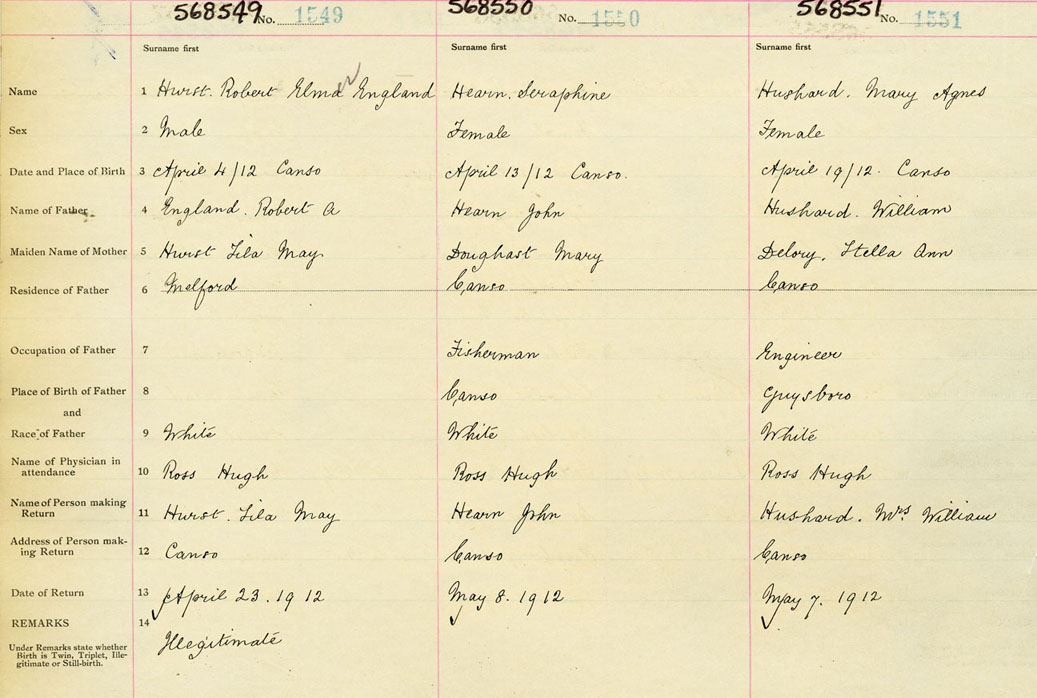 568549 No. 1549 568550 No. 1550 568551 No. 1551
Surname first Surname first Surname first
Name 1 Hurst. Robert Elmer England Hearn. Seraphine Hushard. Mary Agnes
Sex 2 Male Female Female
Date and Place of Birth 3 April 4/12 Canso April 13/12 Canso. April 19/12. Canso
Name of Father 4 England. Robert A Hearn John Hushard. William
Maiden Name of Mother 5 Hurst Lila May Doughast Mary Delory, Stella Ann
Residence of Father 6 Melford Canso Canso
Occupation of Father 7 Fisherman Engineer
Place of Birth of Father 8 Canso Guysboro
and
Race of Father 9 White White White
Name of Physician in
attendance 10 Ross Hugh Ross Hugh Ross Hugh
Name of Person making
Return 11 Hurst. Lila May Hearn John Hushard. Mrs. William
Address of Person mak-
ing Return 12 Canso Canso Canso
Date of Return 13 April 23. 1912 May 8. 1912 May 7. 1912
REMARKS 14
Under Remarks state whether
Birth is Twin, Triplet, Ille-
gitimate or Still-birth.
Illegitimate